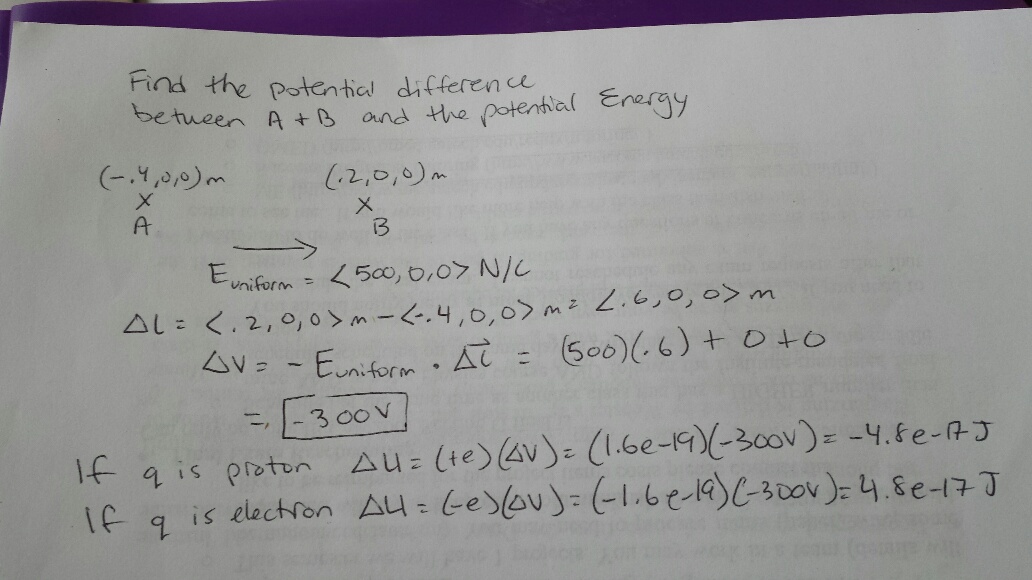 Find the potential difference
between A + B and the potential Energy
(-.4,0,0)m (.2,0,0)m
X X
A B
E uniform = <500,0,0> N/C
Δl = <.2,0,0>m - <-.4,0,0>m = <.6,0,0>m
ΔV = - Euniform • Δl⃗ = (500)(.6) + 0 + 0
= -300V
If q is proton ΔU = (+e)(ΔV) = (1.6e-19)(-300V) = -4.8e-17J
If q is electron ΔU = (-e)(ΔV) = (-1.6e-19)(-300V) = 4.8e-17 J